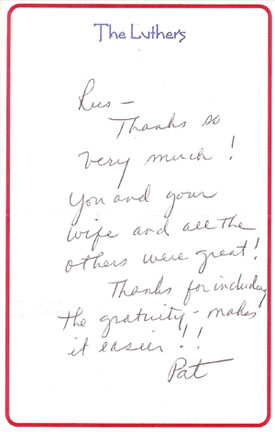 The Luthers
Rus –
Thanks so
very much!
You and your
wife and all the
others were great!
Thanks for including
the gratuity – makes
it easier!!
Pat